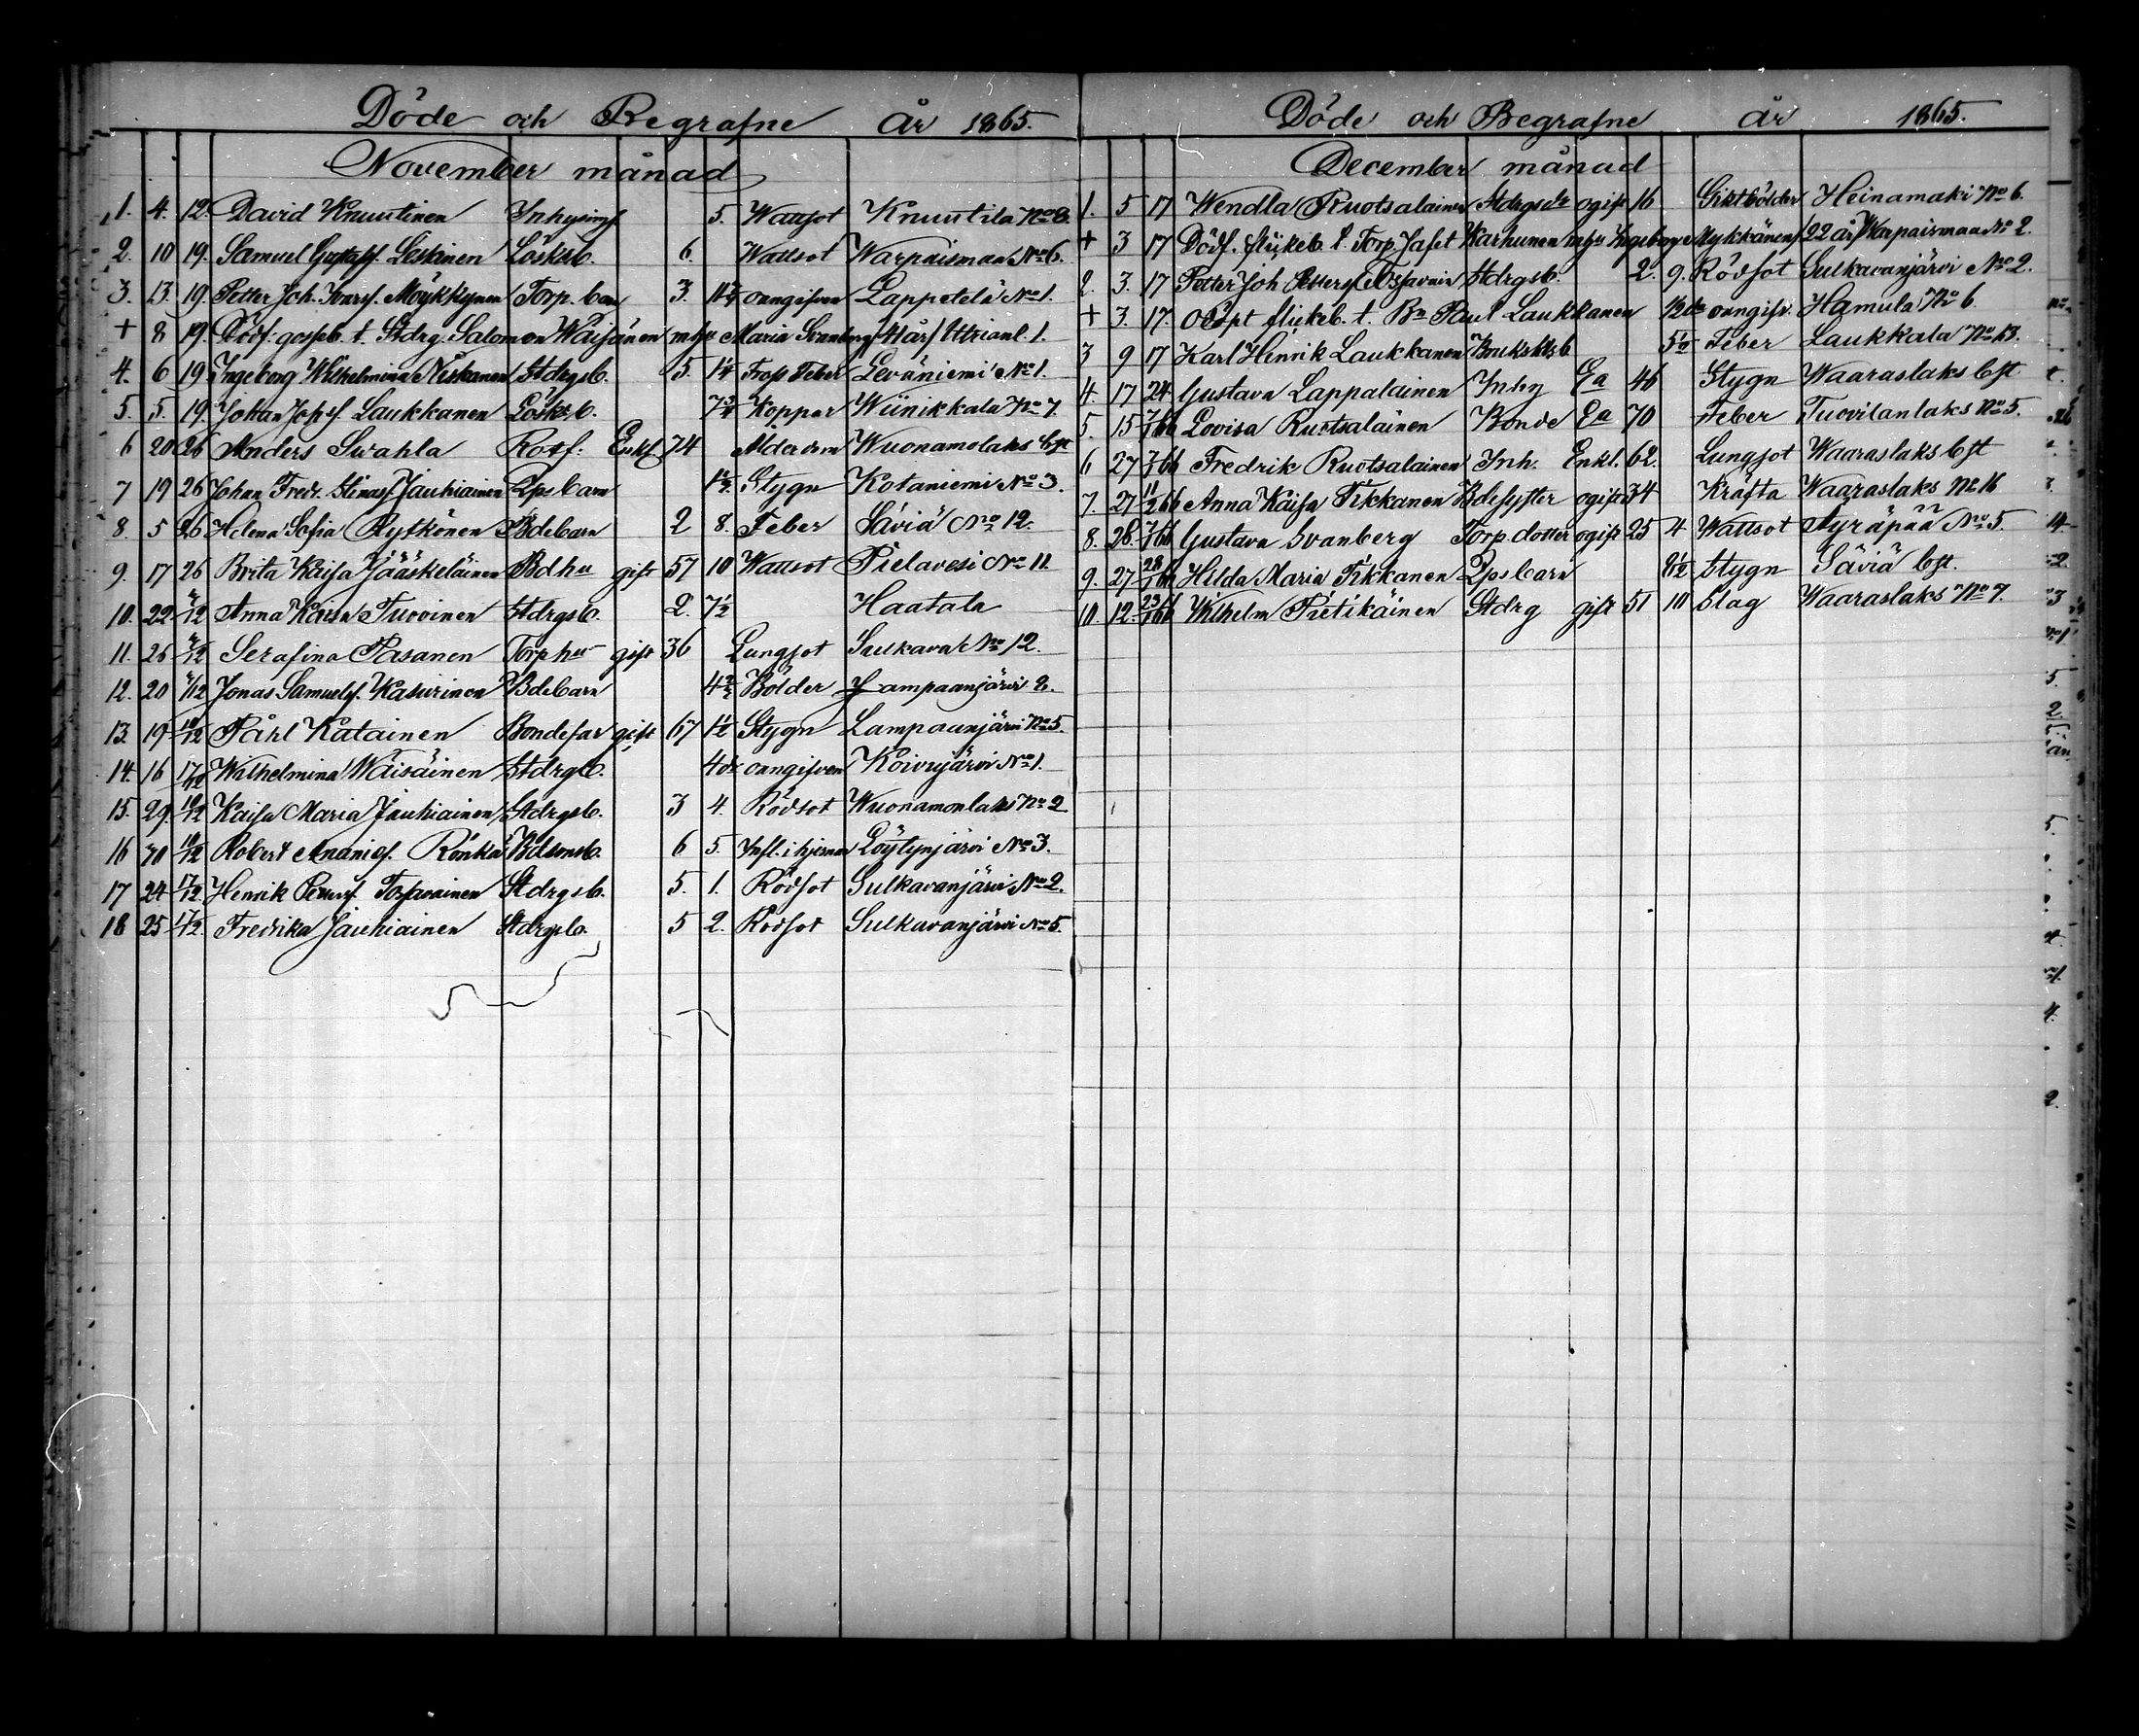 Döde och Begrafne År 1865.
November månad
1. 4. 12. David Knuutinen Inhysing 5. Wattsot Knuutila No 8.
2. 10 19. Samuel Gustafss. Leskinen Löskb. 6. Wattsot Warpaismaa No 6.
3. 13. 19. Petter Joh. Ivarss. Möykkynen Torp. barn 3. oangifven Lappetelä No 1.
+ 8 19. Dödf. gosseb. t. Stdrg. Salomon Wäisänen m hu Maria Svanberg /41 år/ Uttrianl. 1.
4. 6 19 Ingeborg Wilhelmina Niskanen Stdrgsb. 5. 1/4 Frossfeber Leväniemi No 1.
5. 5. 19. Johan Josefss. Laukkanen Löskb. 7 3/4 Koppor Wiinikkala No 7.
6 20 26 Anders Swahla Rotf: Enkl. 74 Ålderdom Wuonamolaks bst
7 19 26 Johan Fredr. Stinass. Jauhiainen Lpsbarn 1 1/2. Stygn Kotaniemi No 3.
8. 5 26 Helena Sofia Rytkönen Bdebarn 2 8. Feber Säviä No 12.
9. 17 26 Brita Kaisa Jääskeläinen Bdhu gift 57 10 Wattsot Pielavesi No 11
10. 22 /12 Anna Kaisa Tuovinen Stdrgsb. 2. 7 1/2 Haatala
11. 26 /12 Serafina Pasanen Torphu gift 36 Lungsot Sulkava No 12.
12. 20 /12 Jonas Samuelss. Kasurinen Bdebarn Bölder Lampaanjärvi 2.
13. 19 10/12 Påhl Katainen Bondefar gift 67 1 1/2 Stygn Lampaanjärvi No 5.
14. 16 17/12 Wilhelmina Wäisäinen Stdrgb. 4 dr oangifven Koivujärvi No 1.
15. 29. 10/12 Kaisa Maria Jauhiainen Stdrgsb. 3 4. Rödsot Wuonamonlaks No 2
16 10/12 Robert Ananiess. Rönkä Bdsonsb. 6 5. Infl. i hjernan Löytynjärvi No 3.
17 24 17/12. Henrik Petterss. Tossavainen Stdrgsb. 5. 1. Rödsot Sulkavanjärvi No 2.
18 25 17/12. Fredrika Jauhiainen Stdrgsb. 5 2. Rödsot Sulkavanjärvi No 5.
Döde och Begrafne år 1865.
December månad
1. 5 17 Wendla Ruotsalainen Stdrgsdr ogift 16 Giktbölder Heinamaki No 6.
+ 3 17 Dödf. flickeb. t. Torp. Jafet Karhunen m hu Ingeborg Mykkänen /22 år/ Warpaismaa No 2.
2. 3. 17 Petter Joh Petterss. Tossavain Stdrgsb. 2. 9. Rödsot Sulkavanjärvi No 2.
+ 3. 17. Odöpt flickeb. t. Bn Paul Laukkanen 1/2 dr oangifv. Hamula No 6.
3 9 17 Karl Henrik Laukkanen Feber Laukkala No 13.
4. 17 24 Gustava Lappalainen Inhy Ea 46 Stygn Waaraslaks bst
5. 15 7/1 66 Lovisa Ruotsalainen Bonde Ea 70 Feber Tuovilanlaks No 5.
6 27 7/1 66 Fredrik Ruotsalainen Inh. Enkl. 62. Lungsot Waaraslaks bst
7. 27 11/2 66 Anna Kaisa Tikkanen Bdesyster ogift 34 Kräfta Waaraslaks No 16
8. 28. 7/1 66 Gustava Svanberg Torp. dotter ogift 25 4 Wattsot Äyräpää No 5.
9. 27 28/1 66 Hilda Maria Tikkanen Lpsbarn 8 1/2 Stygn Säviä bst.
10. 12. 23/1 66 Wilhelm Pietikäinen Stdrg gift 51 10 Slag Waaraslaks No 7.